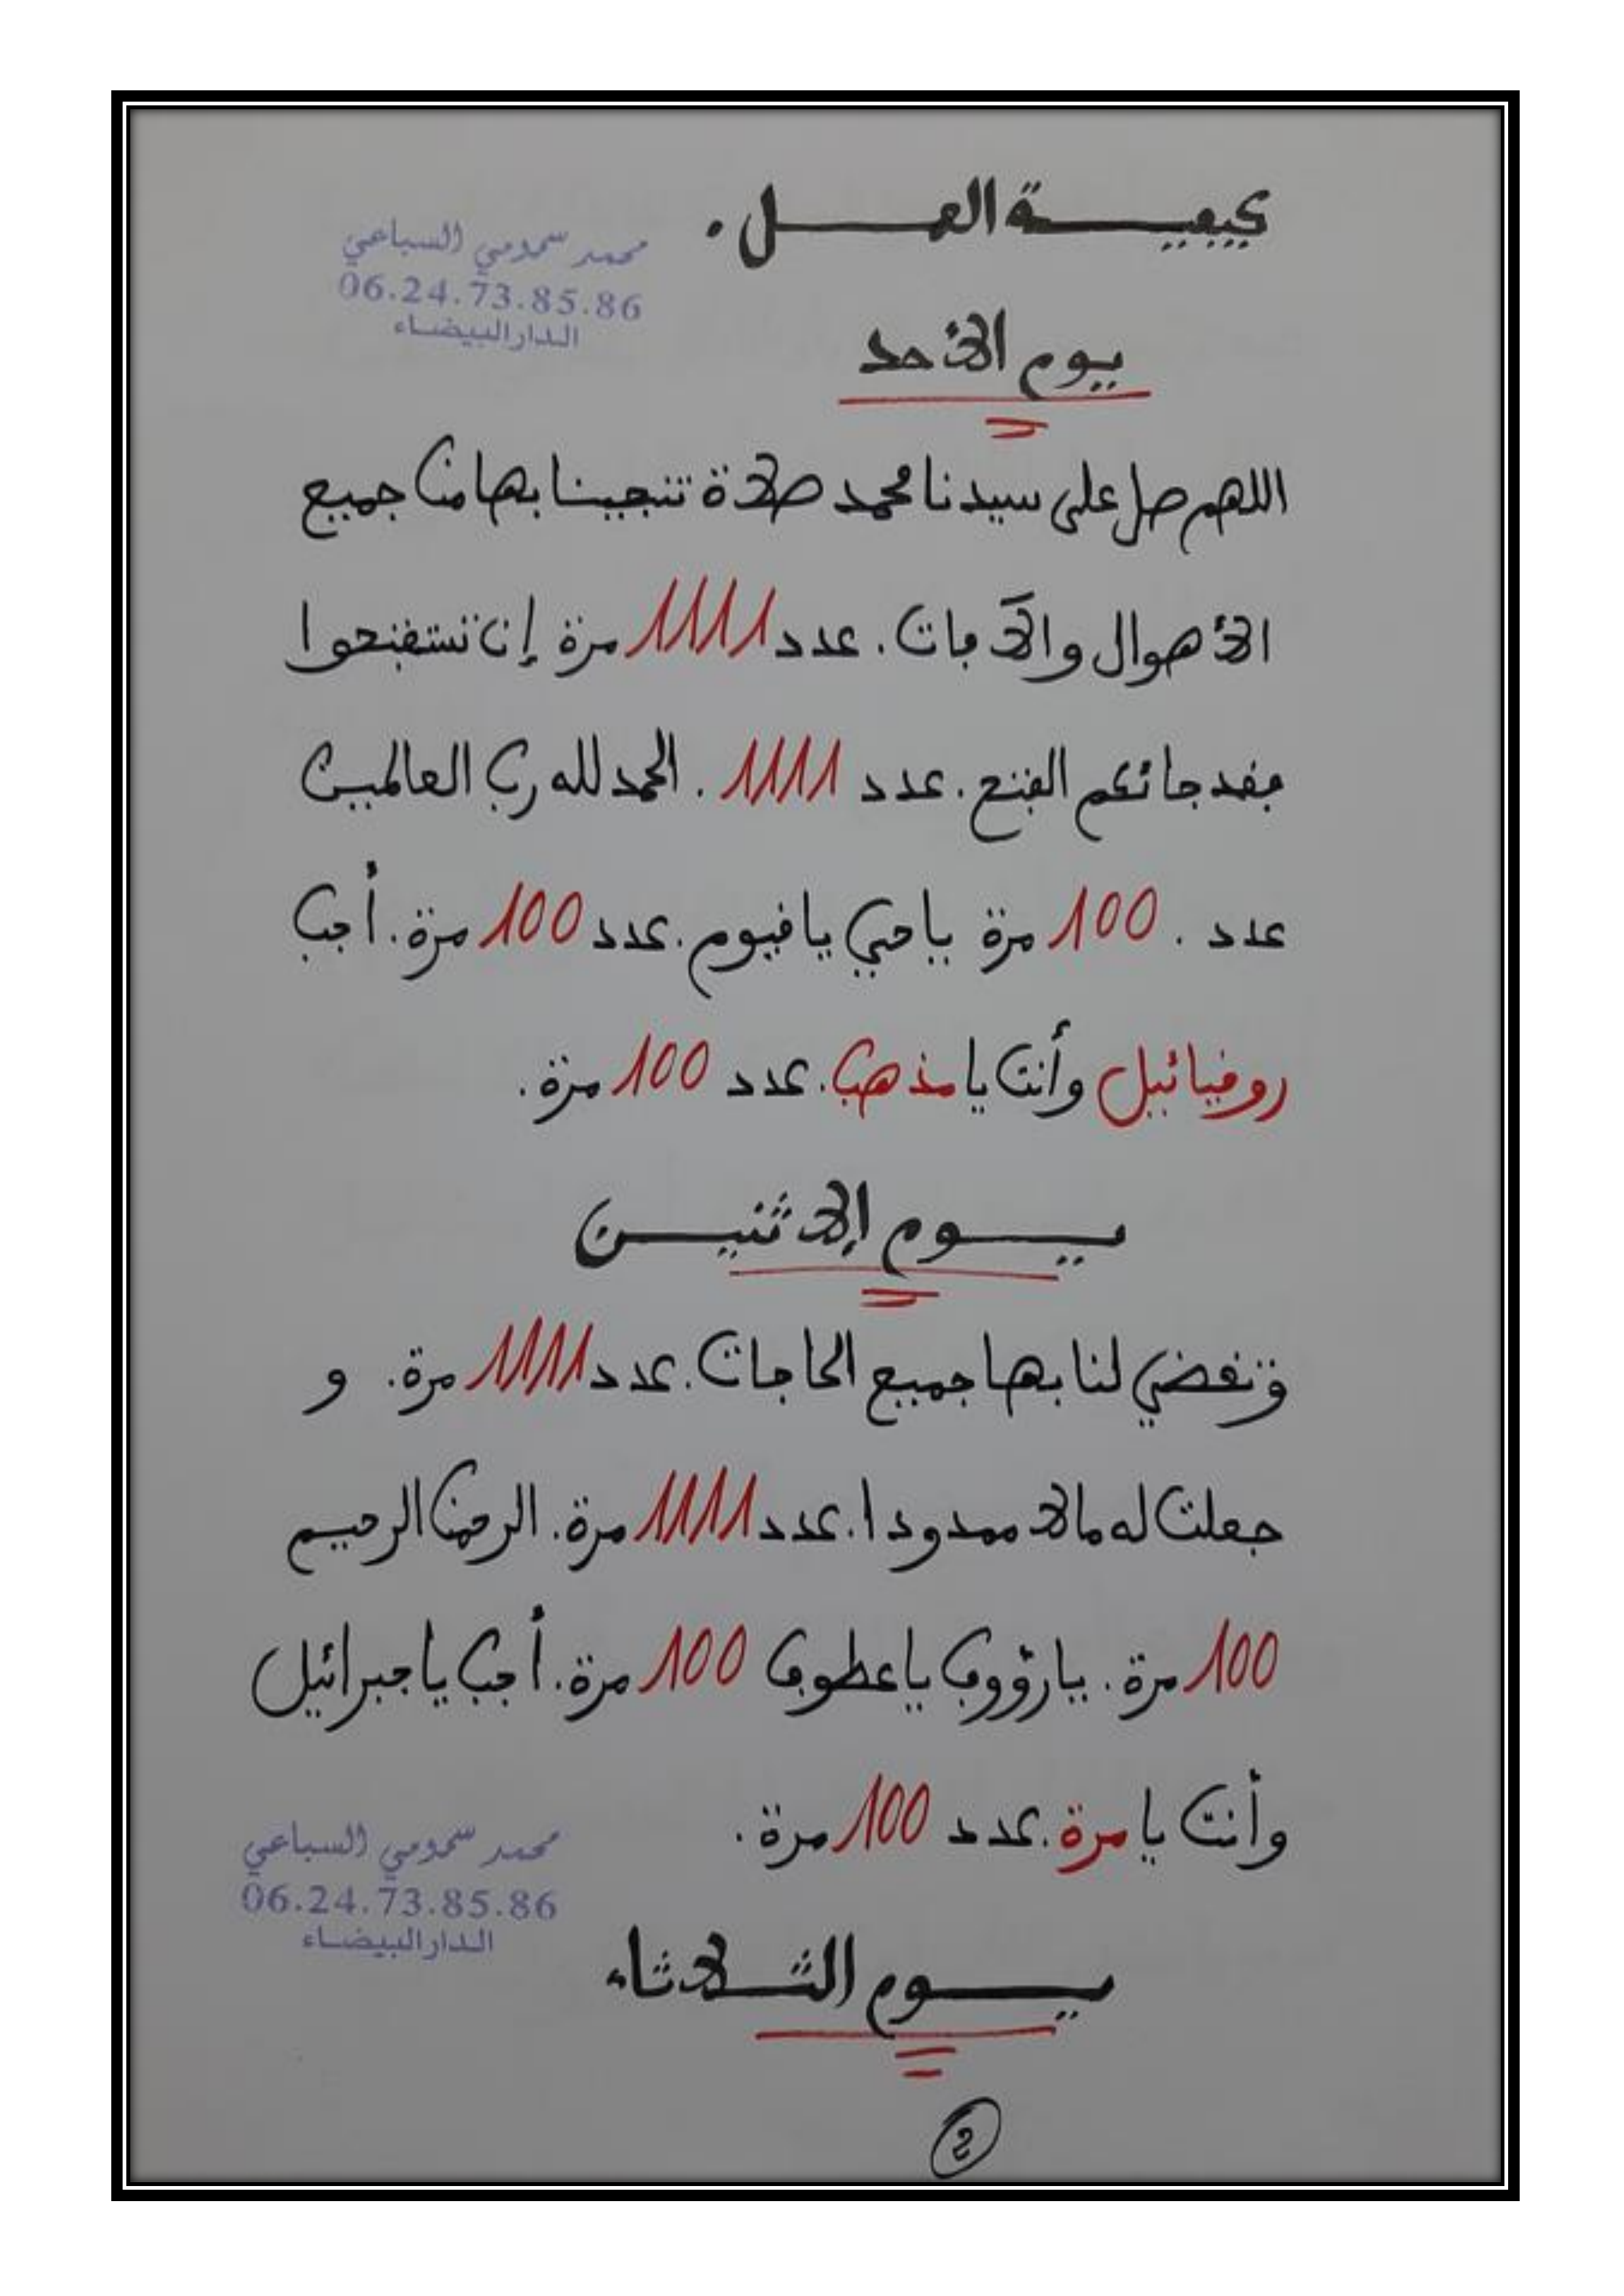 كيفية العمل.
محمد سحومي السباعي
06.24.73.85.86
الدار البيضاء
يوم الأحد
اللهم صل على سيدنا محمد صلاة تنجينا بها من جميع
الأهوال والآفات. عدد 1111 مرة إن تستفتحوا
فقد جائكم الفتح. عدد 1111. الحمد لله رب العالمين
عدد. 100 مرة يا حي يا قيوم. عدد 100 مرة. أجب
روفيائيل وأنت يا مذهب. عدد 100 مرة.
يوم الإثنين
وتقضي لنا بها جميع الحاجات. عدد 1111 مرة. و
جعلت له مالا ممدودا. عدد 1111 مرة. الرحمن الرحيم
100 مرة. يا رؤوف يا عطوف 100 مرة. أجب يا جبرائيل
وأنت يا مرة. عدد 100 مرة.
محمد سحومي السباعي
06.24.73.85.86
الدار البيضاء
يوم الثلاثاء
2